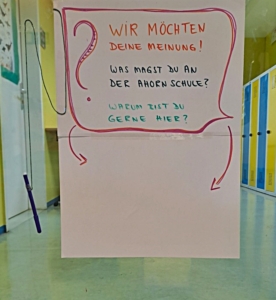 ?
WIR MÖCHTEN
DEINE MEINUNG!
WAS MAGST DU AN
DER AHORNSCHULE?
WARUM BIST DU
GERNE HIER?